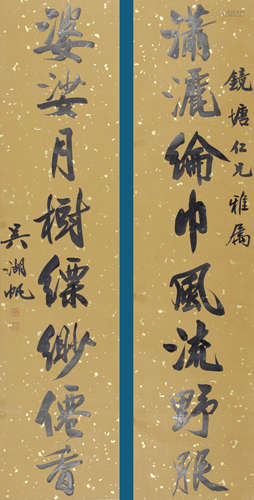 鏡塘仁兄雅属
瀟灑綸巾風流野服
婆娑月樹縹緲僊香
吳湖帆